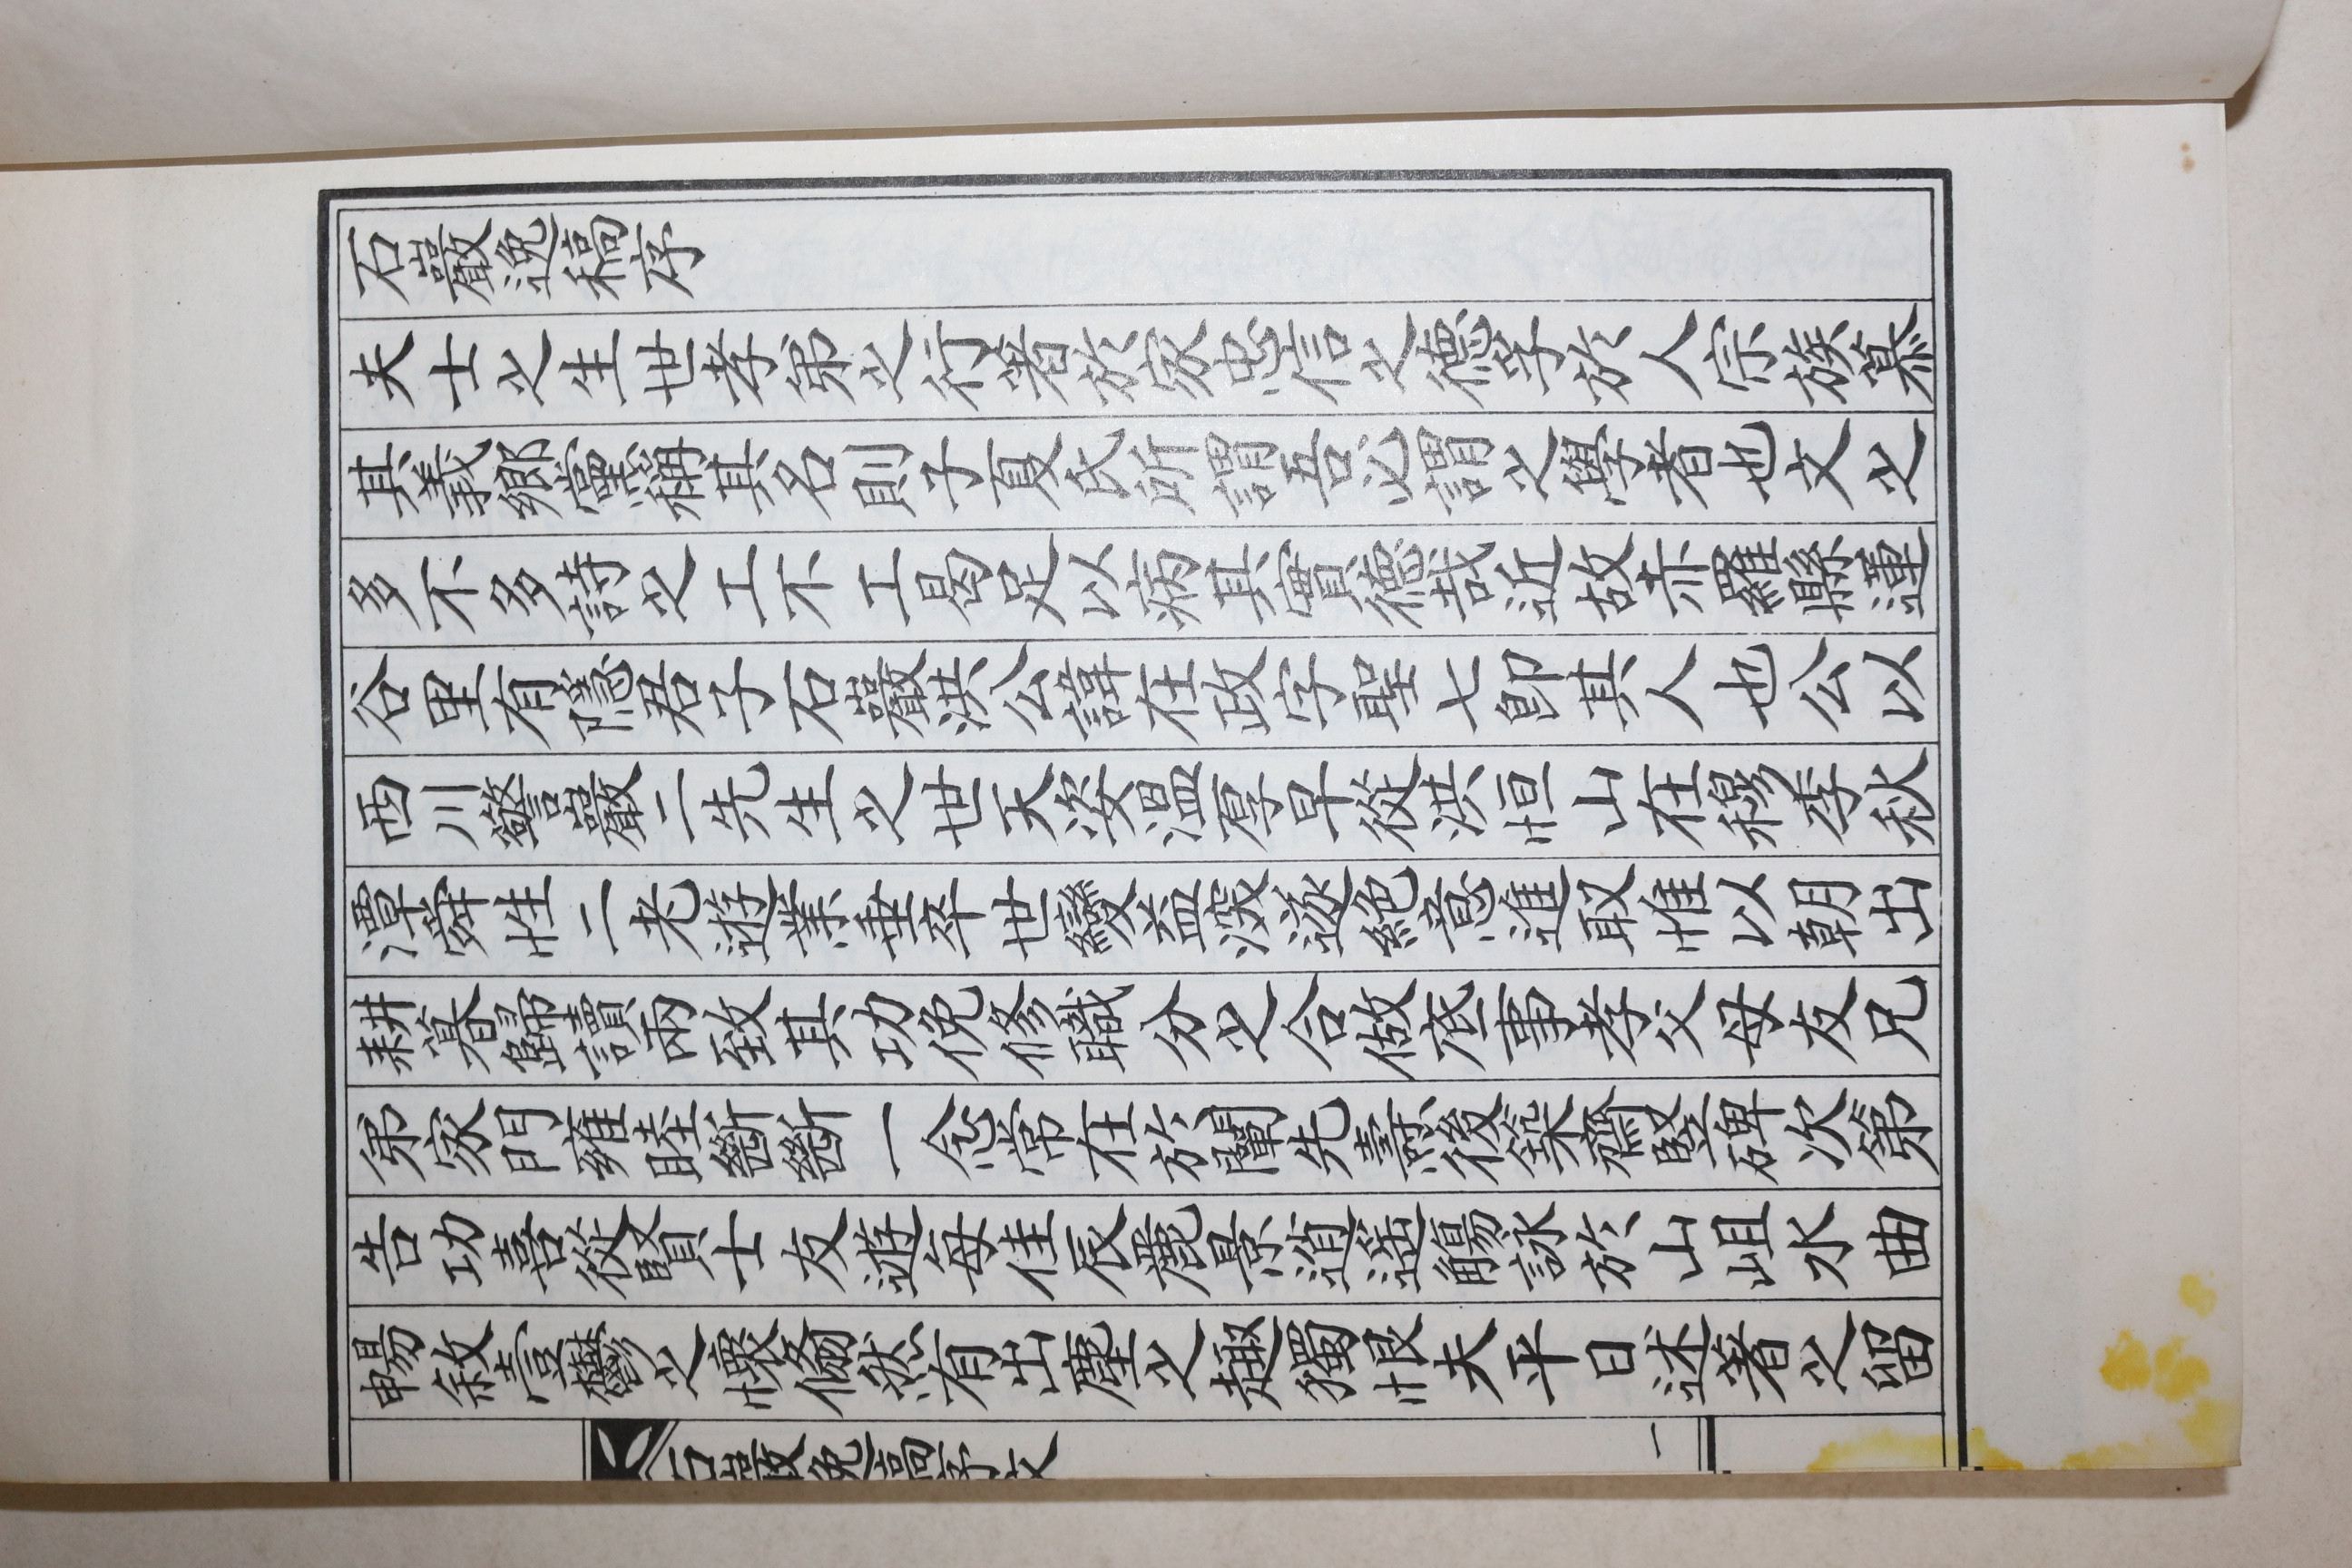 石巖逸稿序
夫士之生世孝弟之行著於家忠信之德孚於人宗族慕
其義鄉黨稱其名則子夏氏所謂吾必謂之學者也文之
多不多詩之工不工曷足以病其實德哉近故赤羅縣蓮
谷里有隱君子石巖洪公諱在政字聖七卽其人也公以
西川警巖二先生之世天姿溫厚早從洪恒山在穆李秋
潭舜性二老遊業垂卒世變益深遂絕意進取惟以朝出
耕暮歸讀兩致其功俛修職分之合做底事孝父母友兄
弟家門雍睦斷斷一念常在於闡先壽後築齋竪碑次第
告功喜從賢士友遊每佳辰麗景逍遙觴詠於山岨水曲
暢敘壹鬱之懷翛然有出塵之趣獨恨夫平日述著之留
石巖逸稿序文 一